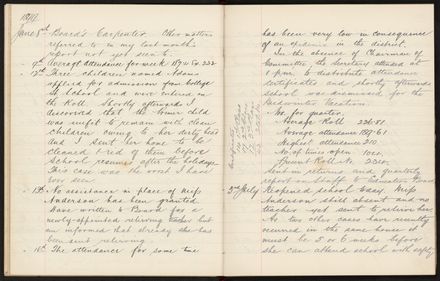 1894
June 5th Board's Carpenter. Other matters
referred to in my last month's
report not yet seen to.
Average attendance for week
Three children named Adams
applied for admission from College
St School and were entered on
the Roll. Shortly afterwards I
discovered that the former child
was unfit to remain with clean
children owing to her dirty head
and I sent her home to be
cleaned & rid of them before
School resumes after the holidays.
This case was the worst I have
ever seen.
No assistance in place of Miss
Anderson has been granted.
Have written to Board for a
newly-appointed relieving teacher but
am informed that already she has
been sent relieving.
The attendance for some time
has been very low in consequence
of an epidemic in the district.
In the absence of Chairman of
Committee, the Secretary attended at
1 p.m. to distribute attendance
certificates and shortly afterwards
school was dismissed for the
Midwinter Vacation.
No. for quarter.
Average Roll
Average attendance
Highest attendance 210
No. of times open
Present Roll No.
Sent in returns and quarterly
report
2nd July Reopened school today. Miss
Anderson still absent and no
teacher yet sent to relieve her.
As two other cases have recently
occurred in the same house it
must be 5 or 6 weeks before
she can attend school with safety